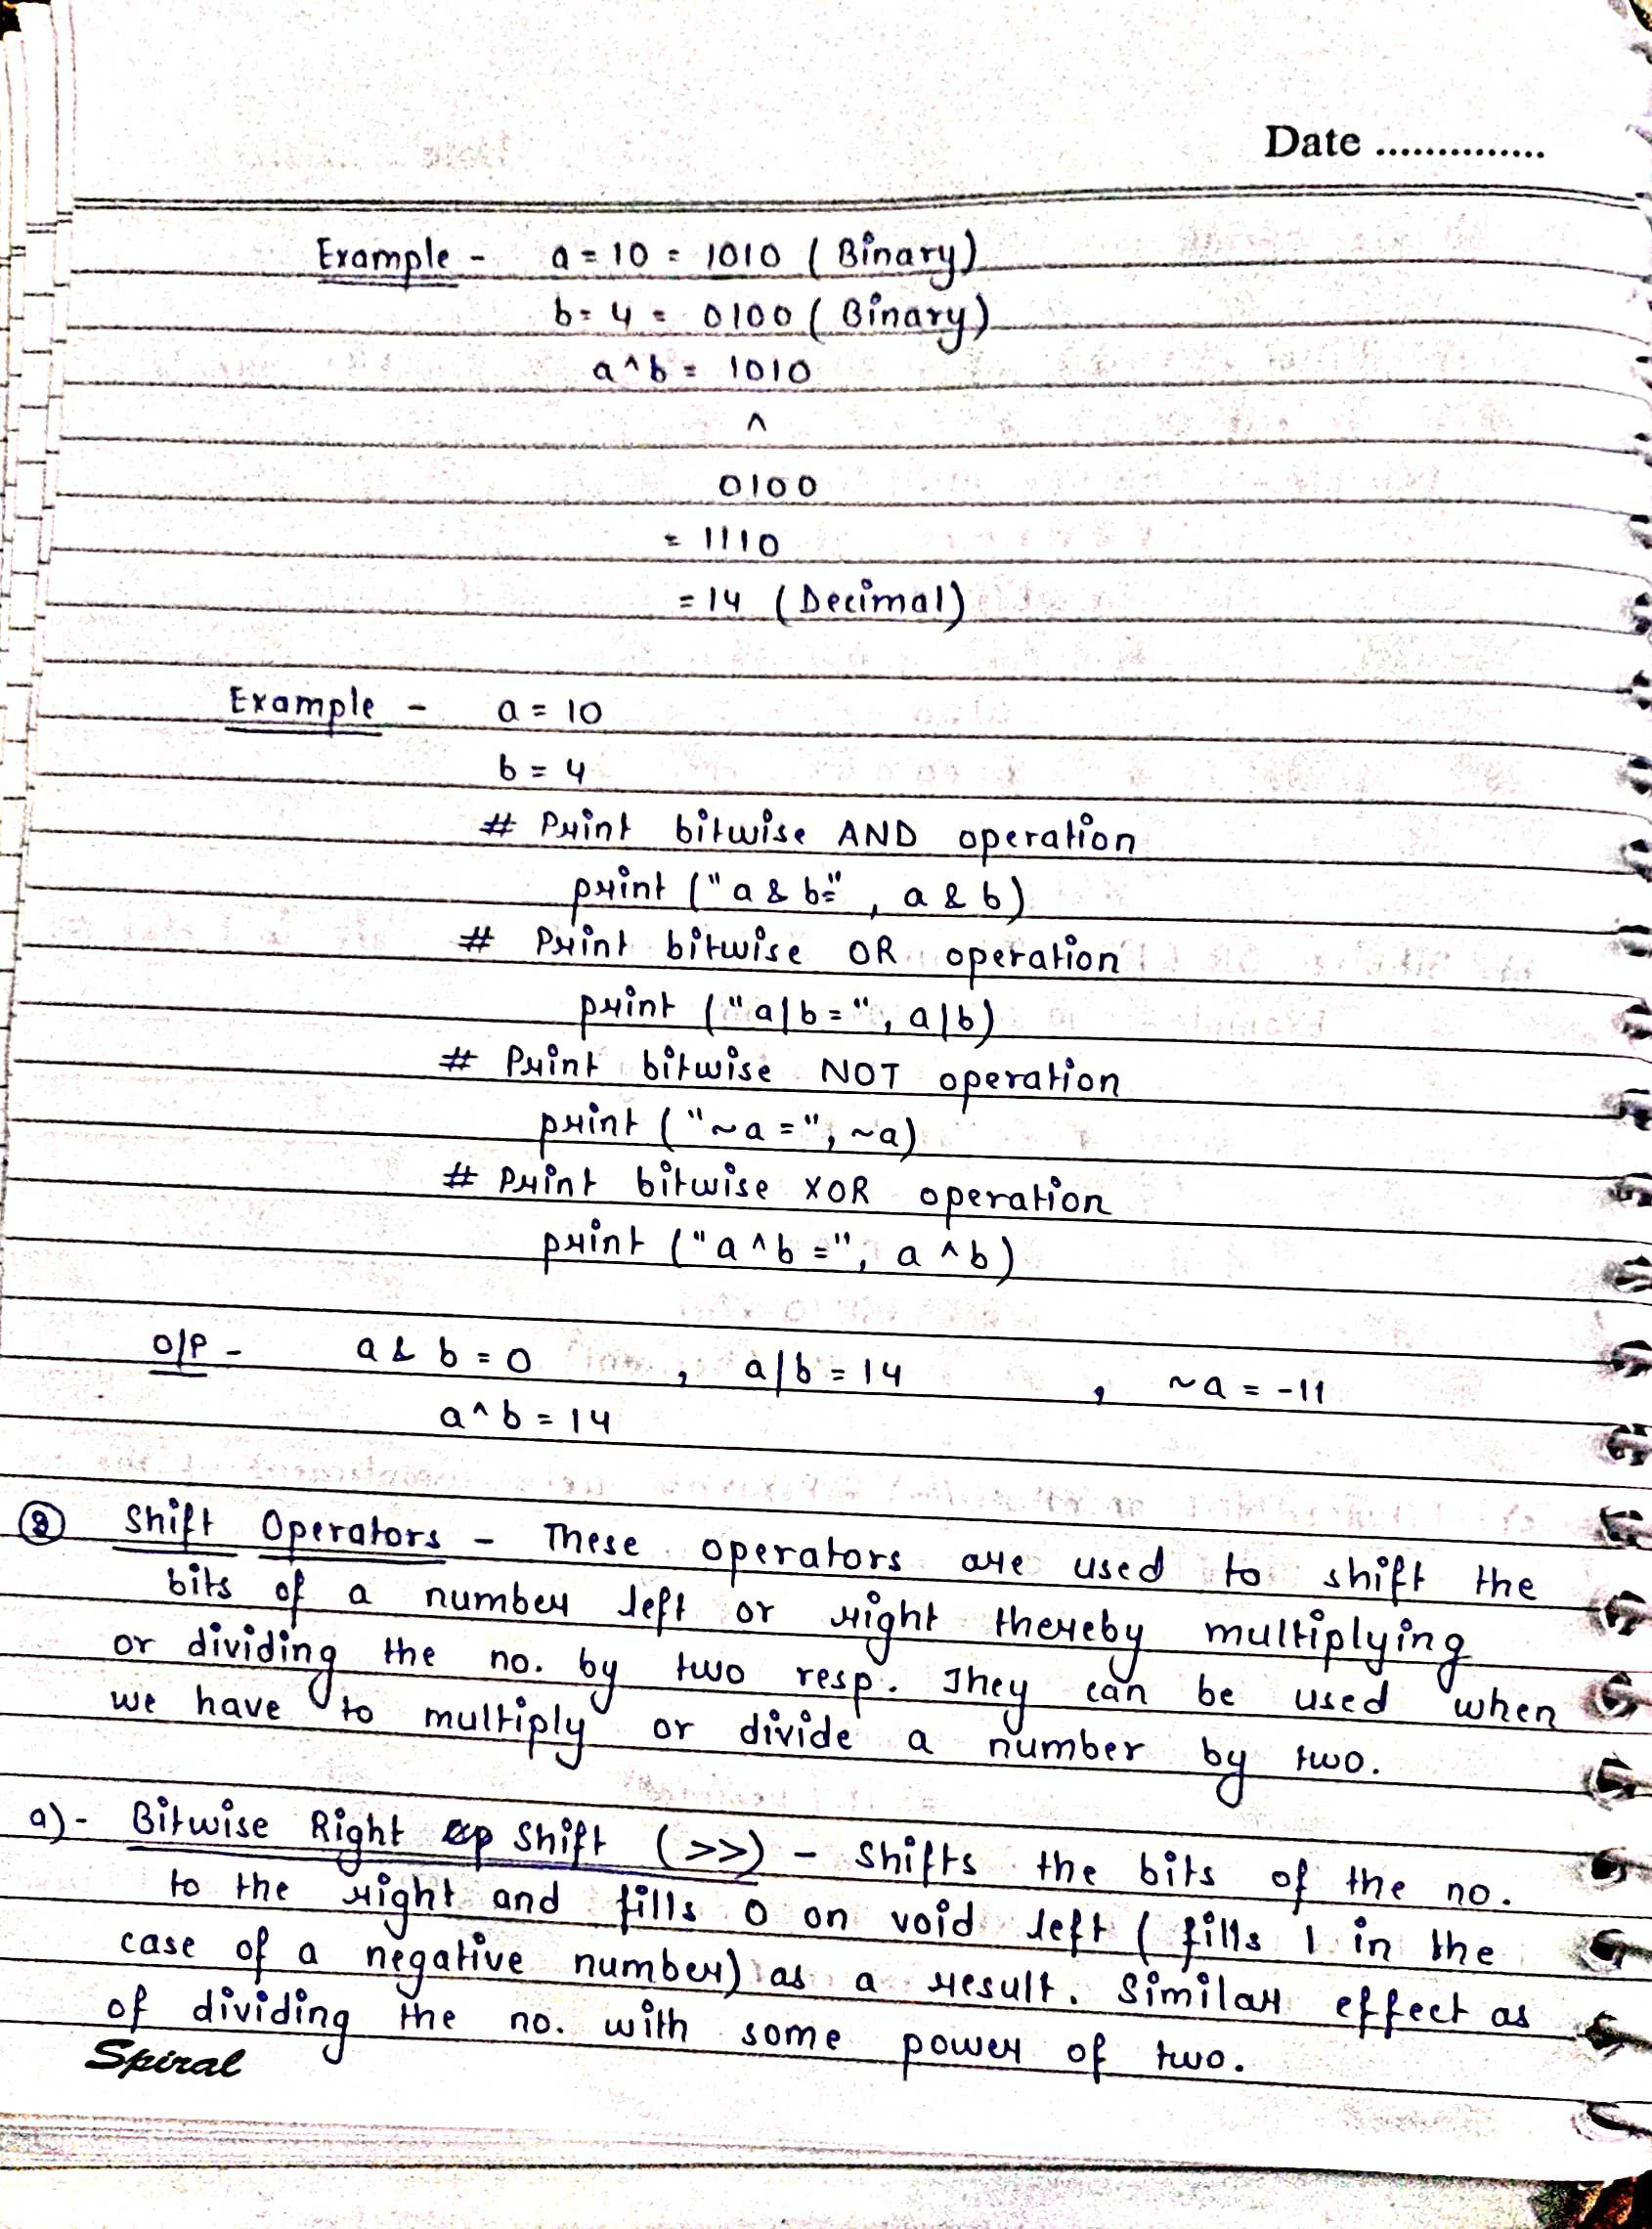 Date ..............
Example - a = 10 = 1010 (Binary)
b = 4 = 0100 (Binary)
a ^ b = 1010
^
0100
= 1110
= 14 (Decimal)
Example - a = 10
b = 4
# Print bitwise AND operation
print ("a & b=", a & b)
# Print bitwise OR operation
print ("a|b=", a|b)
# Print bitwise NOT operation
print ("~a=", ~a)
# Print bitwise XOR operation
print ("a^b=", a^b)
O/P - a & b = 0 , a|b = 14 , ~a = -11
a^b = 14
Shift Operators - These operators are used to shift the
bits of a number left or right thereby multiplying
or dividing the no. by two resp. They can be used when
we have to multiply or divide a number by two.
a)- Bitwise Right Shift (>>) - Shifts the bits of the no.
to the right and fills 0 on void left (fills 1 in the
case of a negative number) as a result. Similar effect as
of dividing the no. with some power of two.
Spiral